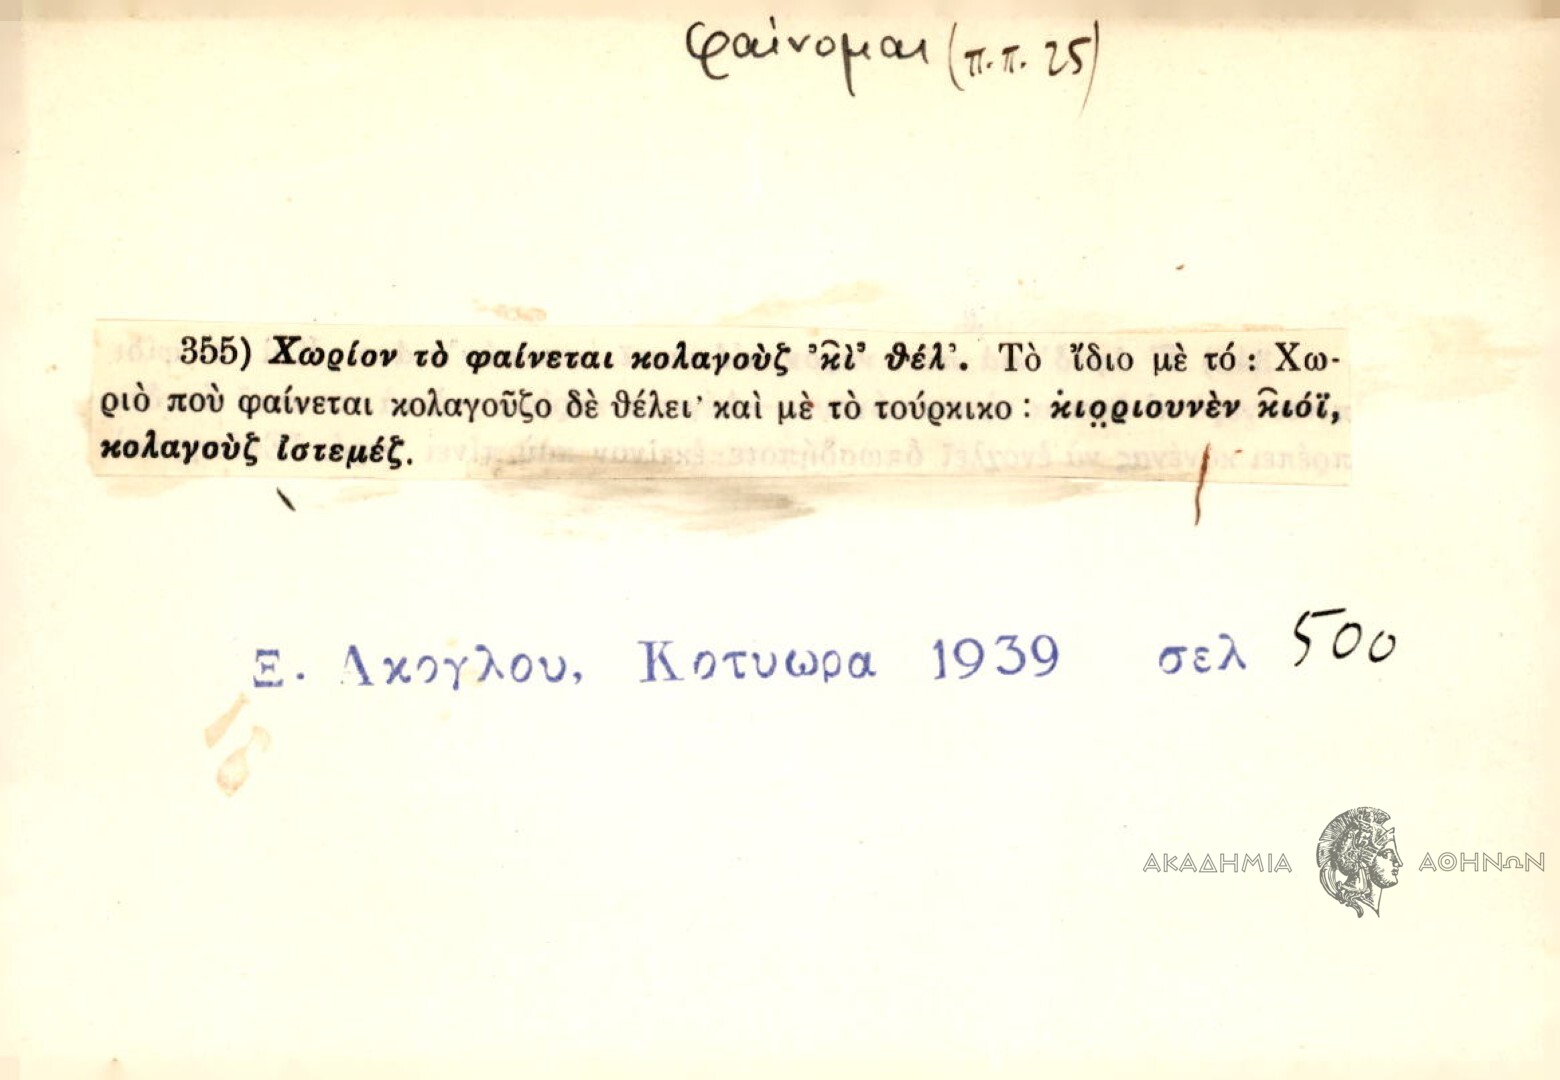 φαίνομαι (π.π. 25)
355) Χωρίον τὸ φαίνεται κολαγοὺζ ’κ̑ὶ’ θέλ’. Τὸ ἴδιο μὲ τό : Χω-
ριὸ ποὺ φαίνεται κολαγοῦζο δὲ θέλει· καὶ μὲ τὸ τούρκικο : κ̇ιο̤ριουνὲν κ̑ιόϊ,
κολαγοὺζ ἰστεμέζ.
Ξ. Ακογλου, Κοτυωρα 1939 σελ 500
ΑΚΑΔΗΜΙΑ ΑΘΗΝΩΝ